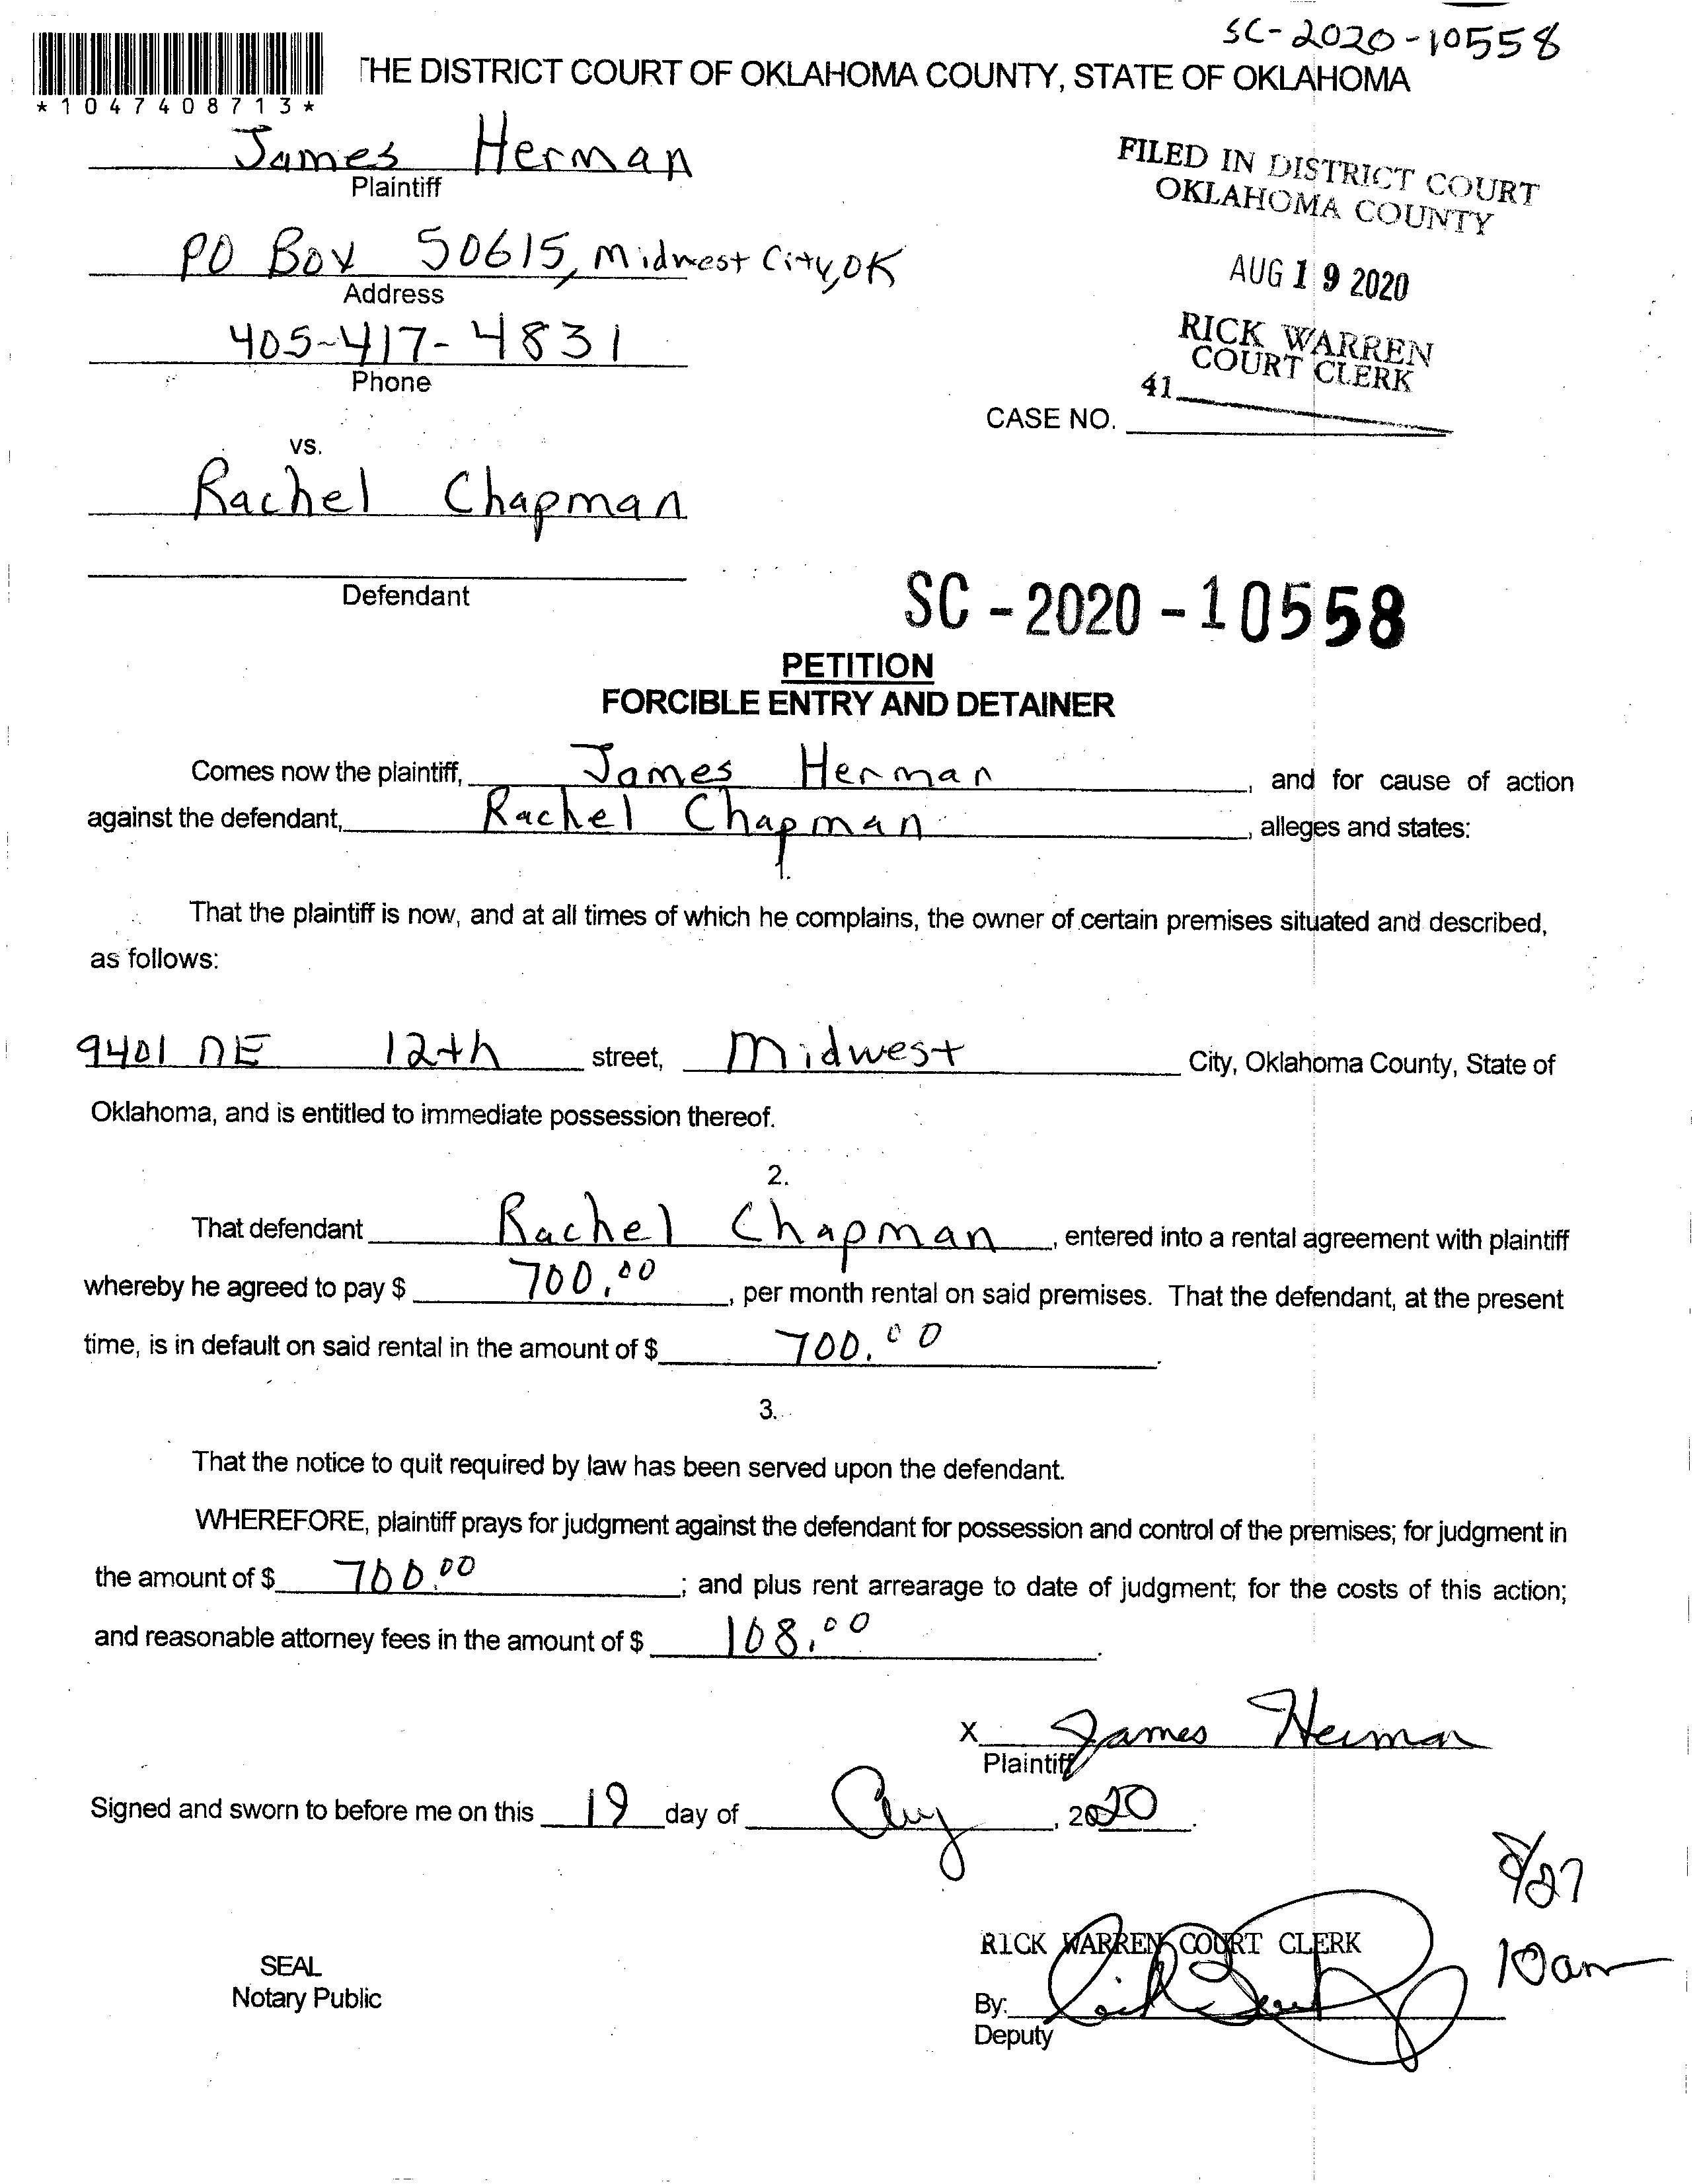 SC-2020-10558
*1047408713*
THE DISTRICT COURT OF OKLAHOMA COUNTY, STATE OF OKLAHOMA
James Herman
Plaintiff
PO Box 50615, Midwest City, OK
Address
405-417-4831
Phone
FILED IN DISTRICT COURT
OKLAHOMA COUNTY
AUG 19 2020
RICK WARREN
COURT CLERK
41
CASE NO.
vs.
Rachel Chapman
Defendant
SC-2020-10558
PETITION
FORCIBLE ENTRY AND DETAINER
Comes now the plaintiff, James Herman, and for cause of action
against the defendant, Rachel Chapman, alleges and states:
1.
That the plaintiff is now, and at all times of which he complains, the owner of certain premises situated and described,
as follows:
9401 NE 12th street, Midwest City, Oklahoma County, State of
Oklahoma, and is entitled to immediate possession thereof.
2.
That defendant Rachel Chapman, entered into a rental agreement with plaintiff
whereby he agreed to pay $ 700.00, per month rental on said premises. That the defendant, at the present
time, is in default on said rental in the amount of $ 700.00.
3.
That the notice to quit required by law has been served upon the defendant.
WHEREFORE, plaintiff prays for judgment against the defendant for possession and control of the premises; for judgment in
the amount of $ 700.00; and plus rent arrearage to date of judgment; for the costs of this action;
and reasonable attorney fees in the amount of $ 108.00.
X James Herman
Plaintiff
Signed and sworn to before me on this 19 day of Aug, 2020.
8/27
10am
RICK WARREN COURT CLERK
SEAL
Notary Public
By:
Deputy